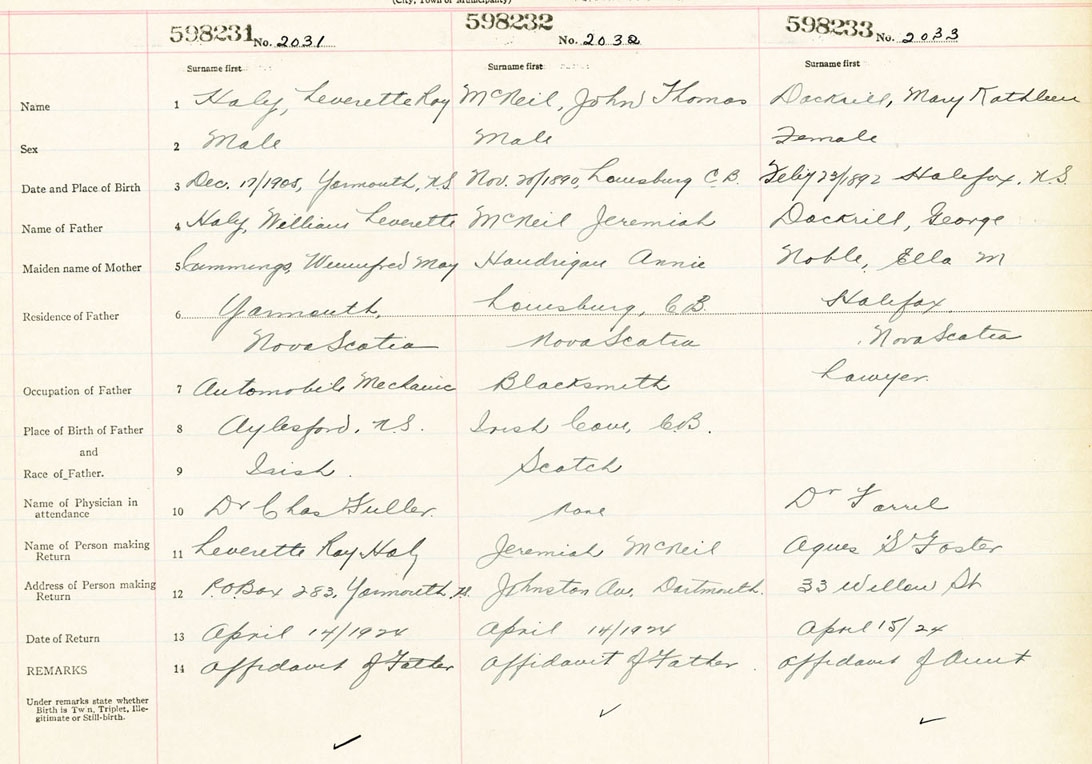 (City, Town or Municipality)
598231 No. 2031 598232 No. 2032 598233 No. 2033
Surname first Surname first Surname first
Name 1 Haly, Leverette Roy McNeil, John Thomas Dockrill, Mary Kathleen
Sex 2 Male Male Female
Date and Place of Birth 3 Dec. 17/1905, Yarmouth, N.S. Nov. 20/1890, Louisburg C.B. 23/1892 Halifax, N.S.
Name of Father 4 Haly, William Leverette McNeil Jeremiah Dockrill, George
Maiden name of Mother 5 Cummings, Winnifred May Handrigan Annie Noble, Ella M
Residence of Father 6 Yarmouth, Louisburg, C.B. Halifax
Nova Scotia Nova Scotia Nova Scotia
Occupation of Father 7 Automobile Mechanic Blacksmith Lawyer.
Place of Birth of Father 8 Aylesford, N.S. Irish Cove, C.B.
and
Race of Father. 9 Irish. Scotch
Name of Physician in
attendance 10 Dr Chas Fuller. None Dr Farrel
Name of Person making
Return 11 Leverette Roy Haly Jeremiah McNeil Agnes Foster
Address of Person making
Return 12 P.O. Box 283, Yarmouth Johnston Ave, Dartmouth. 33 Willow St
Date of Return 13 April 14/1924 April 14/1924 April 15/24
REMARKS 14 Affidavit of Father Affidavit of Father. Affidavit of Aunt
Under remarks state whether
Birth is Twin, Triplet, Ille-
gitimate or Still-birth.